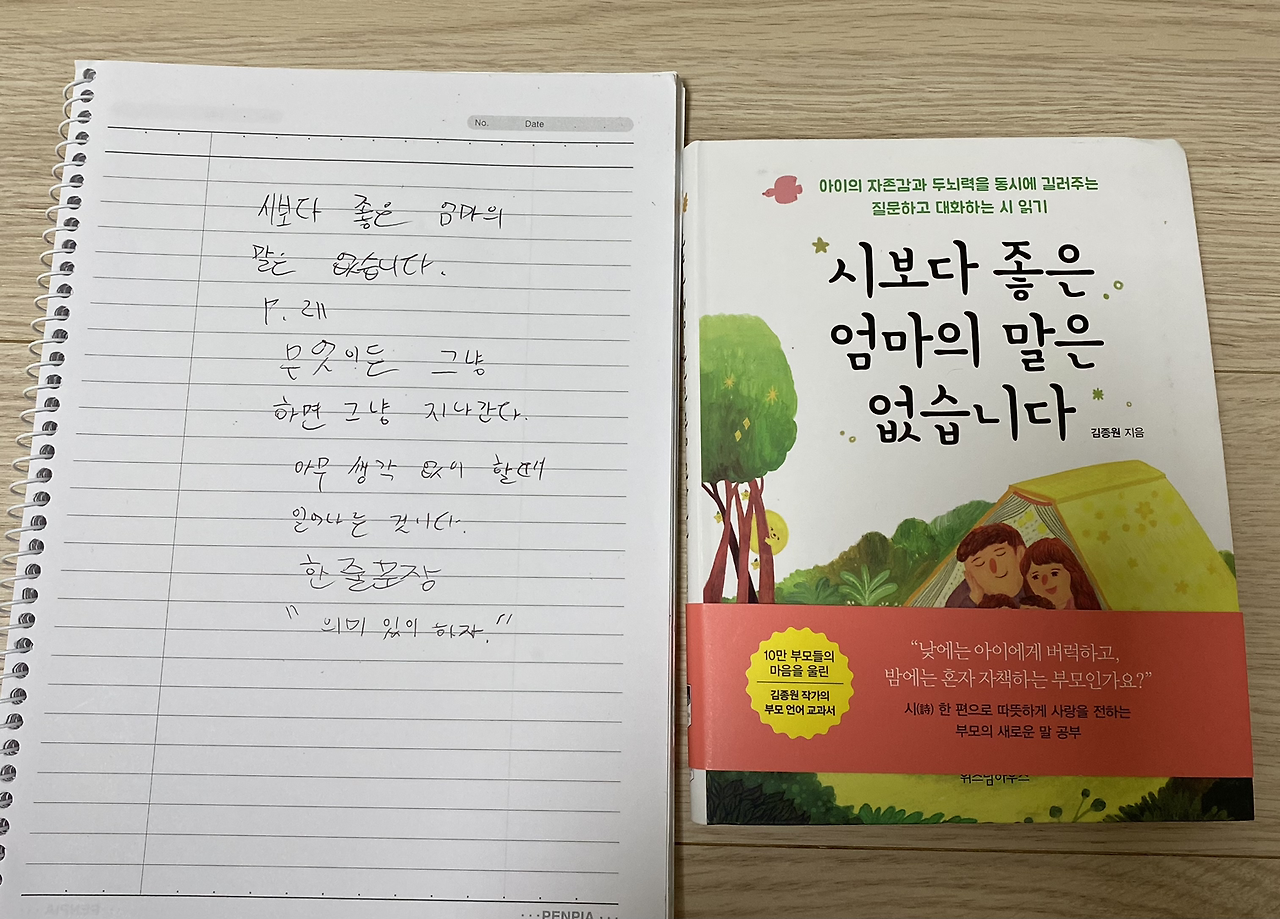 No. Date
시보다 좋은 엄마의
말은 없습니다.
무엇이든 그냥
하면 그냥 지나간다.
아무 생각 없이 할때
일어나는 것이다.
한줄문장
"의미 있이 하자."
PENPIA
아이의 자존감과 두뇌력을 동시에 길러주는
질문하고 대화하는 시 읽기
시보다 좋은
엄마의 말은
없습니다
김종원 지음
10만 부모들의
마음을 울린
김종원 작가의
부모 언어 교과서
“낮에는 아이에게 버럭하고,
밤에는 혼자 자책하는 부모인가요?”
시(詩) 한 편으로 따뜻하게 사랑을 전하는
부모의 새로운 말 공부
위즈덤하우스